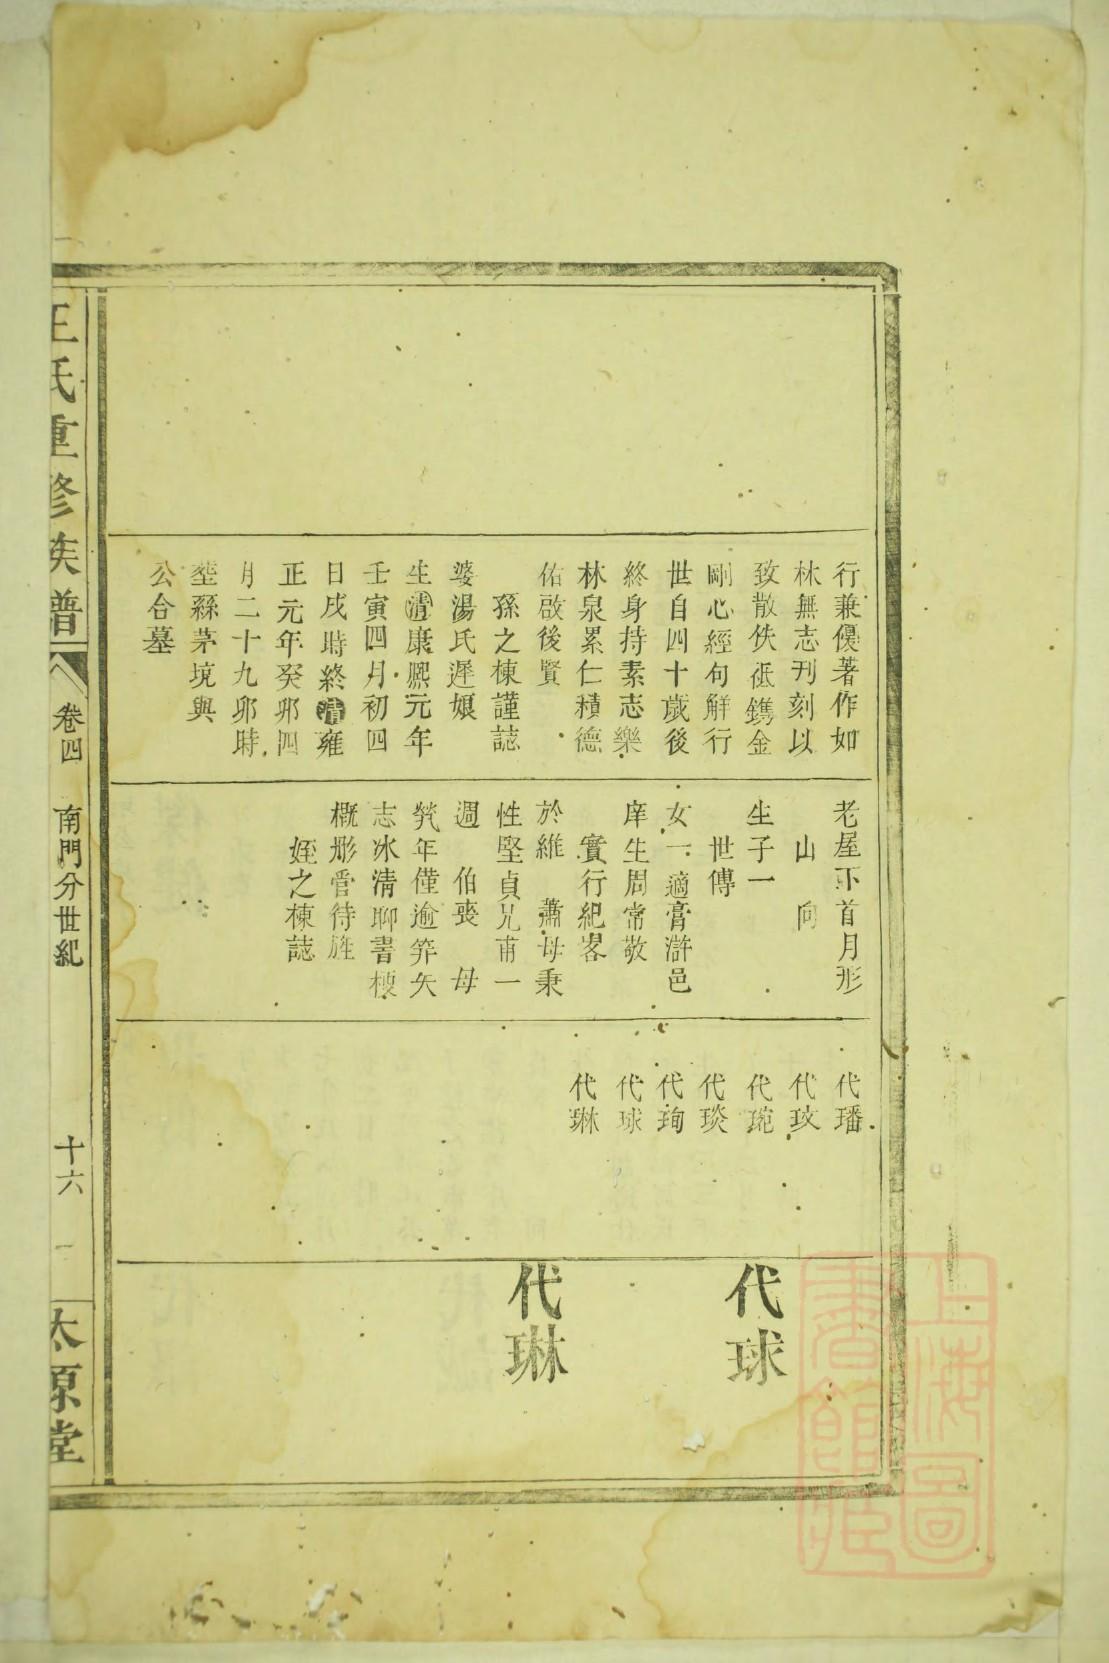 行兼優著作如
林無志刊刻以
致散佚祗鐫金
剛心經句解行
世自四十歲後
終身持素志樂
林泉累仁積德
佑啟後賢
孫之棟謹誌
婆湯氏遲娘
生清康熈元年
壬寅四月初四
日戌時終清雍
正元年癸卯四
月二十九卯時
塟繇茅境與
公合墓
老屋下首月形
山向
生子一
世傳
女一適膏滸邑
庠生周常敬
實行紀畧
於維 蕭母秉
性堅貞兄甫一
週 伯喪 母
㷀年僅逾笄矢
志冰清聊書梗
概彤管待旌
姪之棟誌
代璠
代玟
代琬
代琰
代珣
代球
代琳
代球
代琳
王氏重修族譜
卷四 南門分世紀
十六
太原堂
上海圖
書館藏